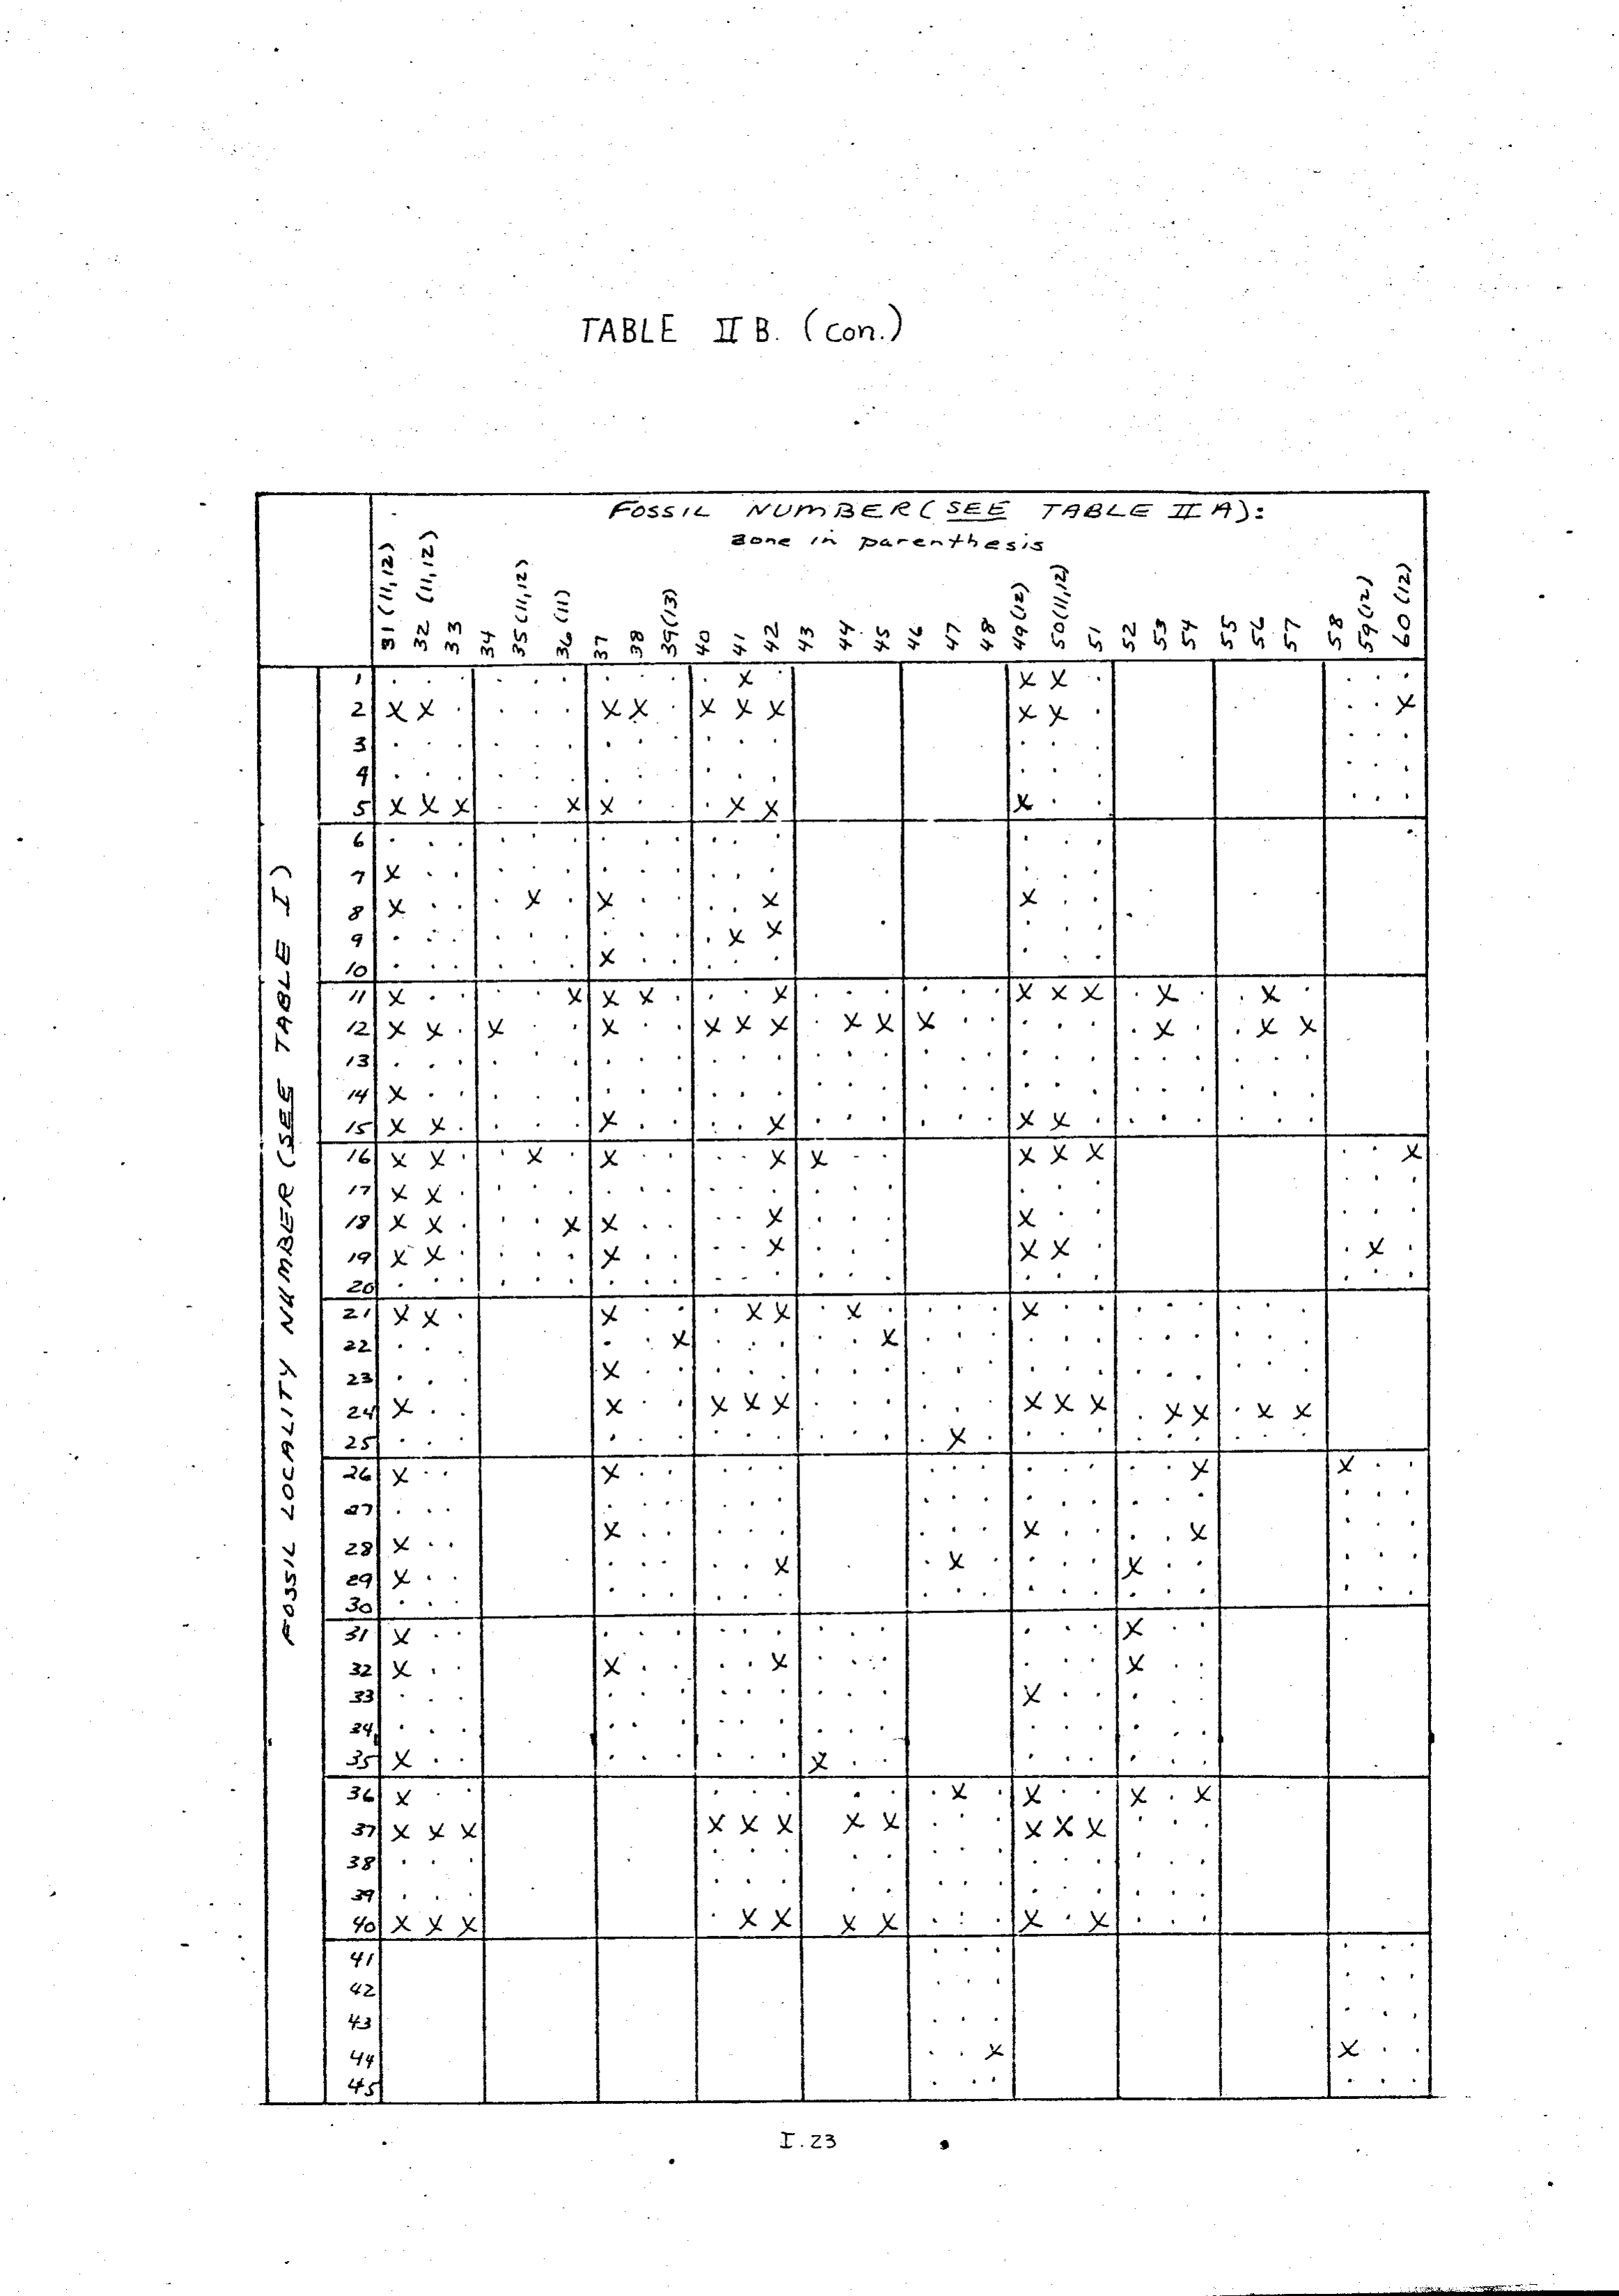 TABLE II B. (con.)
FOSSIL NUMBER (SEE TABLE II A):
zone in parenthesis
31 (11,12) 32 (11,12) 33 34 35 (11,12) 36 (11) 37 38 39 (13) 40 41 42 43 44 45 46 47 48 49 (12) 50 (11,12) 51 52 53 54 55 56 57 58 59 (12) 60 (12)
FOSSIL LOCALITY NUMBER (SEE TABLE I)
1 . . . . . . . . . . X . X X . . . .
2 X X . . . . X X . X X X X X . . . X
3 . . . . . . . . . . . . . . . . . .
4 . . . . . . . . . . . . . . . . . .
5 X X X . . X X . . . X X X . . . . .
6 . . . . . . . . . . . . . . .
7 X . . . . . . . . . . . . . .
8 X . . . X . X . . . . X X . .
9 . . . . . . . . . . X X . . .
10 . . . . . . X . . . . . . . .
11 X . . . . X X X . . . X . . . . . . X X X . X . . X .
12 X X . X . . X . . X X X . X X X . . . . . . X . . X X
13 . . . . . . . . . . . . . . . . . . . . . . . . . . .
14 X . . . . . . . . . . . . . . . . . . . . . . . . . .
15 X X . . . . X . . . . X . . . . . . X X . . . . . . .
16 X X . . X . X . . . . X X . . X X X . . X
17 X X . . . . . . . . . . . . . . . . . . .
18 X X . . . X X . . . . X . . . X . . . . .
19 X X . . . . X . . . . X . . . X X . . X .
20 . . . . . . . . . . . . . . . . . . . . .
21 X X . X . . . X X . X . . . . X . . . . . . . .
22 . . . . . X . . . . . X . . . . . . . . . . . .
23 . . . X . . . . . . . . . . . . . . . . . . . .
24 X . . X . . X X X . . . . . . X X X . X X . X X
25 . . . . . . . . . . . . . X . . . . . . . . . .
26 X . . X . . . . . . . . . . . . . X X . .
27 . . . . . . . . . . . . . . . . . . . . .
28 X . . X . . . . . . . . X . . . . X . . .
29 X . . . . . . . X . X . . . . X . . . . .
30 . . . . . . . . . . . . . . . . . . . . .
31 X . . . . . . . . . . . . . . X . .
32 X . . X . . . . X . . . . . . X . .
33 . . . . . . . . . . . . X . . . . .
34 . . . . . . . . . . . . . . . . . .
35 X . . . . . . . . X . . . . . . . .
36 X . . . . . . . . X . X . . X . X
37 X X X X X X X X . . . X X X . . .
38 . . . . . . . . . . . . . . . . .
39 . . . . . . . . . . . . . . . . .
40 X X X . X X X X . . . X . X . . .
41 . . . . . .
42 . . . . . .
43 . . . . . .
44 . . X X . .
45 . . . . . .
I.23